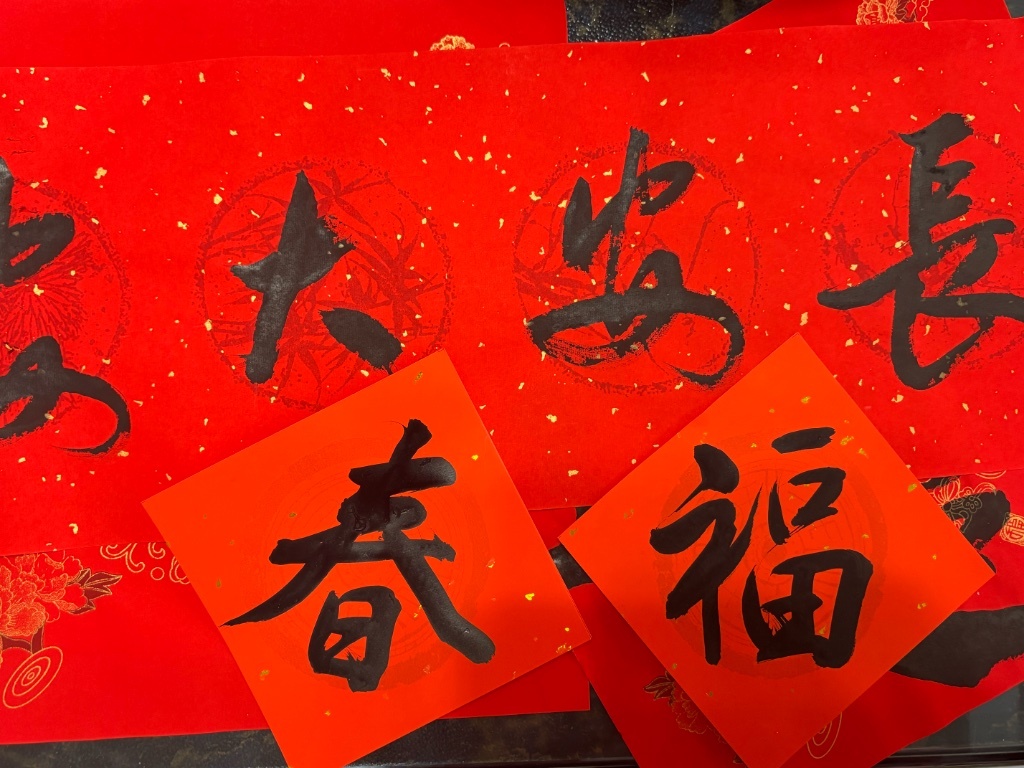 長安大
春
福